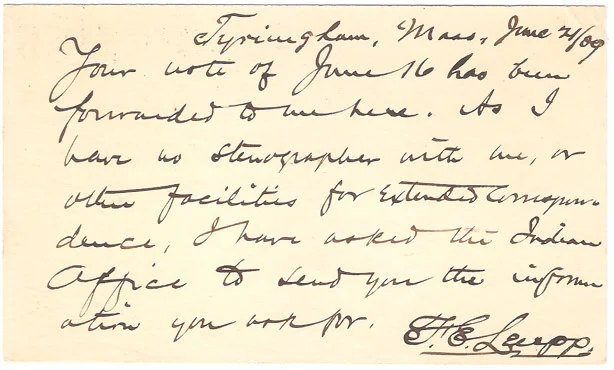 Tyringham, Mass., June 21/09
Your note of June 16 has been
forwarded to me here. As I
have no stenographer with me, or
other facilities for extended correspon-
dence, I have asked the Indian
Office to send you the inform
ation you ask for.
F. E. Leupp.